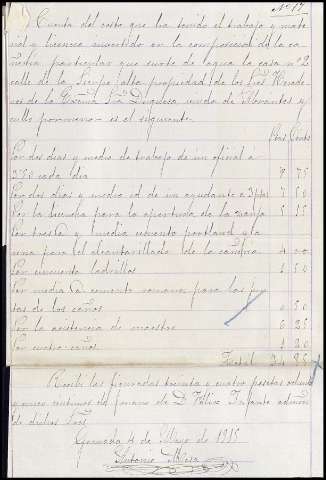 Nº 17
Cuenta del costo que ha tenido el trabajo y mate
rial y licencia invertido en la composicion de la ca
ñeria particular que surte de agua la casa nº 2
calle de la Sierpe alta propiedad de los Sres Herede
ros de la Excma Sra Duquesa viuda de Abrantes y
cullo pormenor es el siguiente.
Pts Cents
Por dos dias y medio de trabajo de un oficial á
350 cada dia 8 75
Por dos dias y medio id de un ayudante a 3 ptas 7 50
Por la licencia para la apertura de la zanja 5 15
Por tres @ y media cemento portland y la
arena para el alcantarillado de la cañeria 4 00
Por cincuenta ladrillos 1 50
Por media @ cemento romano para las jun
tas de los caños 0 50
Por la asistencia de maestro 6 25
Por cuatro caños 1 20
Total 34 85
Recibi las figuradas treinta y cuatro pesetas ochenta
y cinco centimos de mano de D. Felix Infante admor
de dichos Sres
Granada 4 de Mayo de 1915
Antonio Mesa